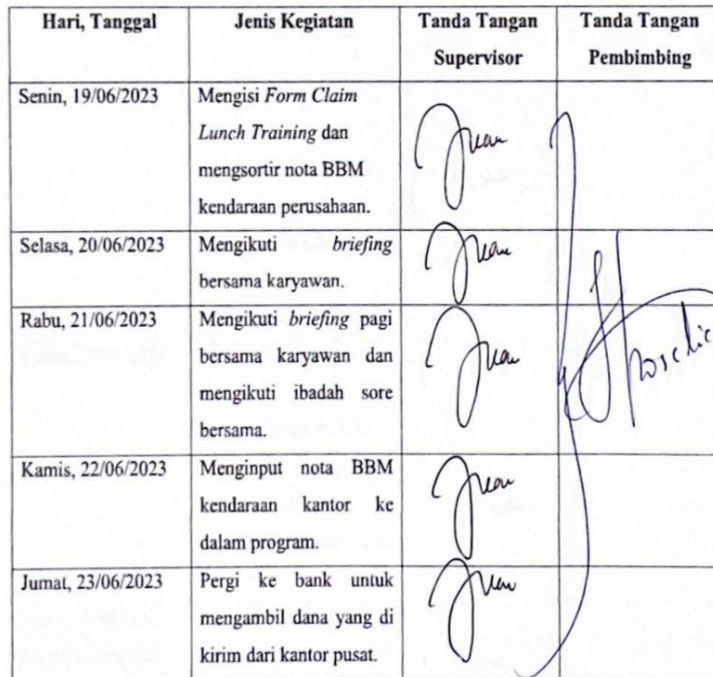 Hari, Tanggal
Jenis Kegiatan
Tanda Tangan
Supervisor
Tanda Tangan
Pembimbing
Senin, 19/06/2023
Mengisi Form Claim
Lunch Training dan
mengsortir nota BBM
kendaraan perusahaan.
Selasa, 20/06/2023
Mengikuti briefing
bersama karyawan.
Rabu, 21/06/2023
Mengikuti briefing pagi
bersama karyawan dan
mengikuti ibadah sore
bersama.
Kamis, 22/06/2023
Menginput nota BBM
kendaraan kantor ke
dalam program.
Jumat, 23/06/2023
Pergi ke bank untuk
mengambil dana yang di
kirim dari kantor pusat.